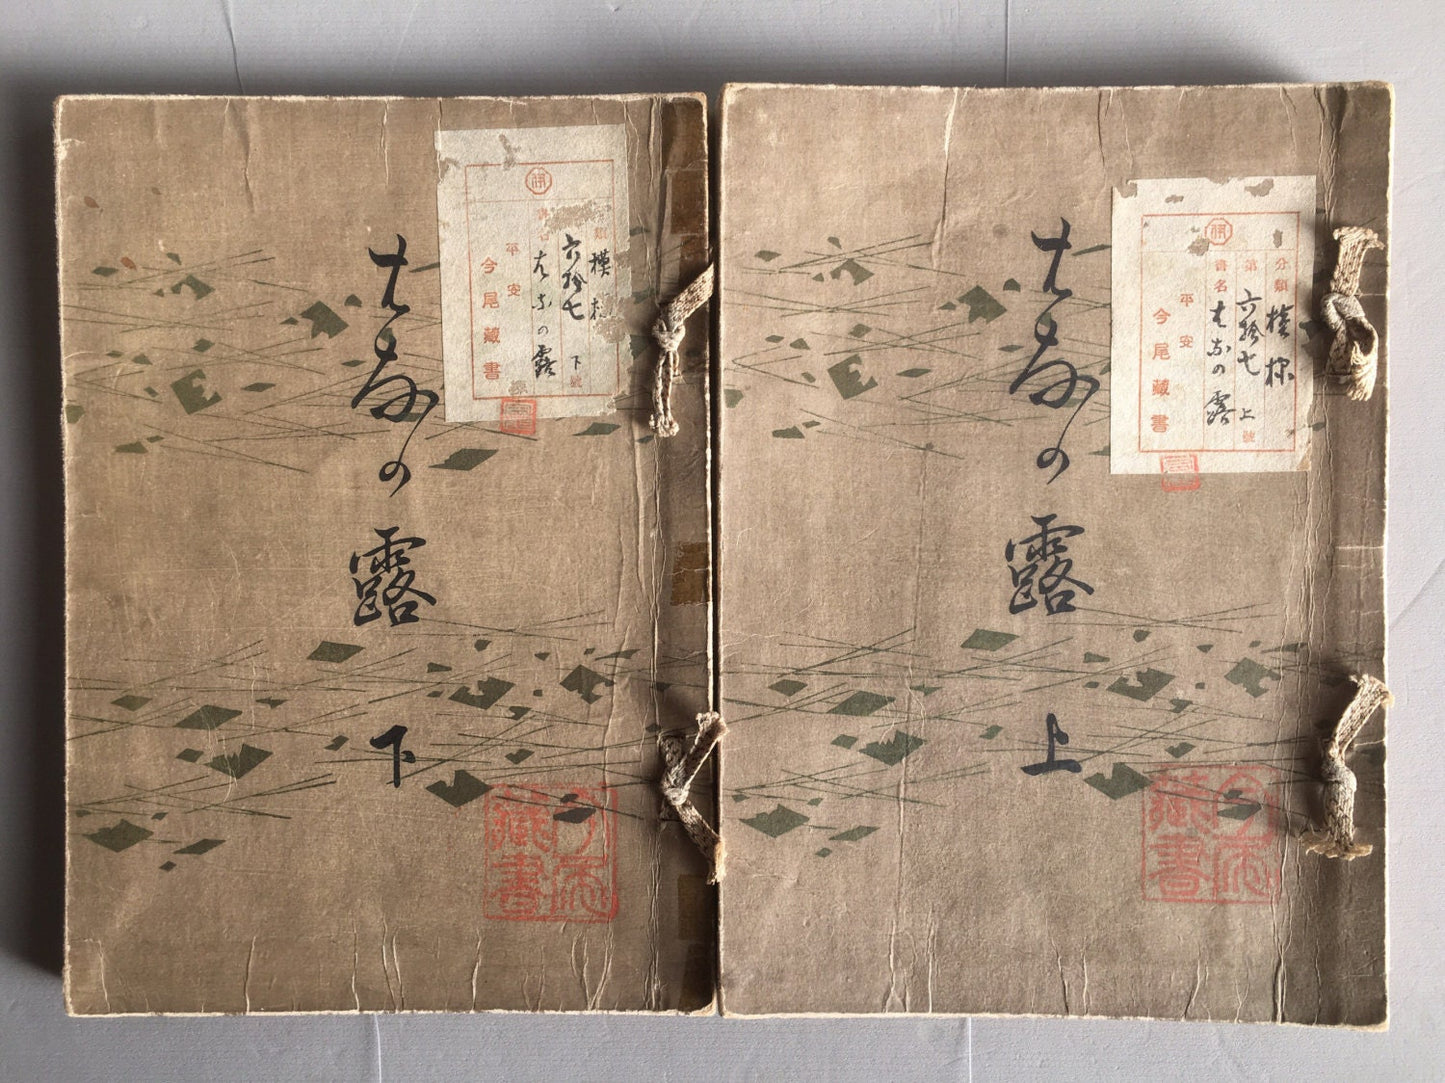 分類 模様
第 六拾七 上 號
書名 はなの露
平安
今尾藏書
はなの露 上
今尾
藏書
類 模
六拾七 下 號
書名 はなの露
平安
今尾藏書
はなの露 下
今尾
藏書